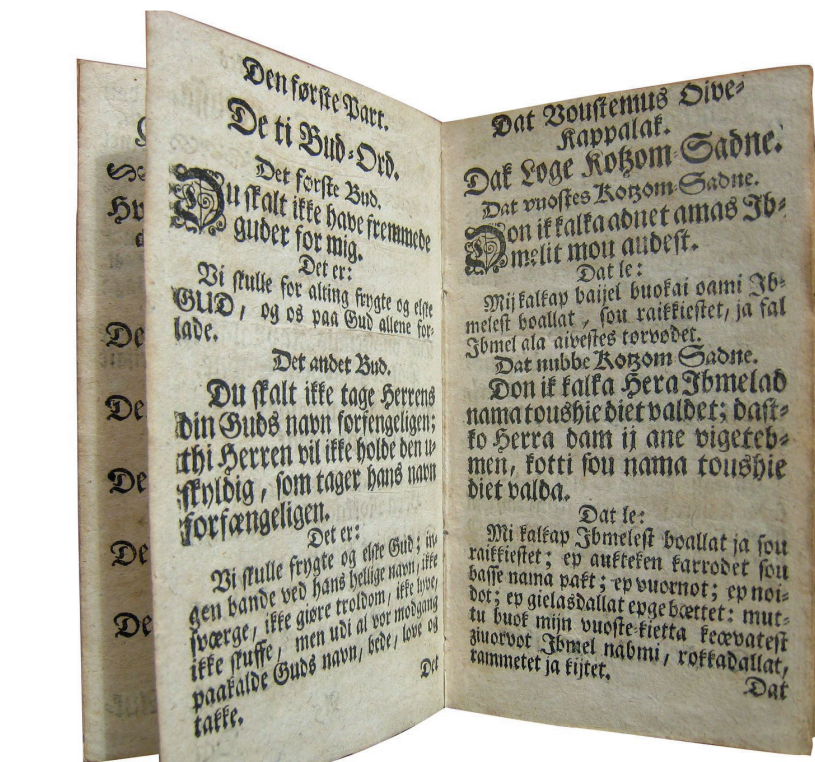 De
De
De
De
De
Den første Part.
De ti Bud-Ord.
Det første Bud.
Du skalt ikke have fremmede
guder for mig.
Det er:
Vi skulle for alting frygte og elske
GUD, og os paa Gud allene for-
lade.
Det andet Bud.
Du skalt ikke tage Herrens
din Guds navn forfengeligen;
thi Herren vil ikke holde den u-
skyldig, som tager hans navn
forfængeligen.
Det er:
Vi skulle frygte og elske Gud; in-
gen bande ved hans hellige navn, ikke
sværge, ikke giøre troldom, ikke lyve,
ikke skuffe, men udi al vor modgang
paakalde Guds navn, bede, love og
takke.
Det
Dat Voustemus Oive-
Kappalak.
Dak Loge Kotzom-Sadne.
Dat vuostes Kotzom-Sadne.
Don ik kalka adnet amas Ib-
melit mou audest.
Dat le:
Mij kalkap baijel buokai oami Ib-
melest boallat, sou raikkiestet, ja fal
Ibmel ala aivestes torvodet.
Dat nubbe Kotzom Sadne.
Don ik kalka Hera Ibmelad
nama toushie diet valdet; dast-
ko Herra dam ij ane vigeteb-
men, kotti sou nama toushie
diet valda.
Dat le:
Mi kalkap Ibmelest boallat ja sou
raikkiestet; ep aukteken karrodet sou
basse nama pakt; ep vuornot; ep noi-
dot; ep gielasdallat epge bættet: mut-
tu buok mijn vuoste-kietta keævatest
ziuorvot Ibmel nabmi, rokkadallat,
rammetet ja kijtet.
Dat